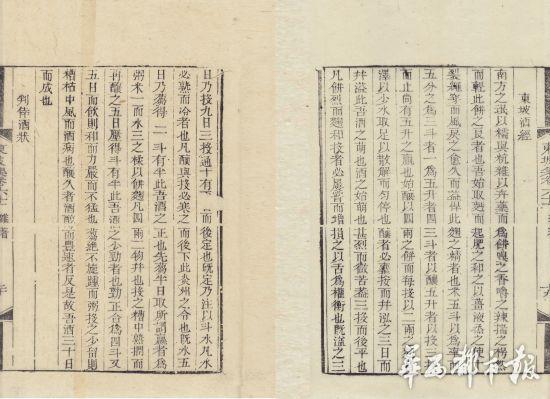 東坡酒經
南方之氓以糯與秔雜以卉藥而爲餅嗅之香嚼之辣揣之枵然
而輕此餅之良者也吾始取麵而起肥之和之以薑液蒸之使十
裂繩穿而風戾之愈久而益悍此麴之精者也米五斗以爲率而
五分之爲三斗者一爲五升者四三斗者以釀五升者以投三投
而止尚有五升之贏也始釀以四兩之餅而每投以二兩之麴皆
澤以少水取足以散解而勻停也釀者必甕按而井泓之三日而
井溢此吾酒之萌也酒之始萌也甚烈而微苦蓋三投而後平也
凡餅烈而麴和投者必屢嘗而增損之以舌爲權衡也既溢之三
日乃投九日三投通十有而後定也既定乃注以斗水凡水
必熟而冷者也凡釀與投必寒之而後下此炎州之令也既水五
日乃篘得二斗有半此吾酒之正也先篘半日取所謂贏者爲
粥米一而水三之揉以餅麴凡四兩二物并也投之糟中熟撋而
再釀之五日壓得斗有半此吾酒之少勁者也勁正合爲四斗又
五日而飲則和而力嚴而不猛也篘絕不旋踵而粥投之少留則
糟枯中風而酒病也釀久者酒醇而豐速者反是故吾酒三十日
而成也
酒狀
雜著
華西都市報